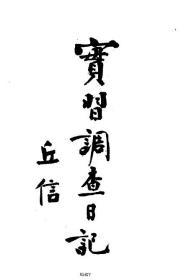 實習調查日記
丘信